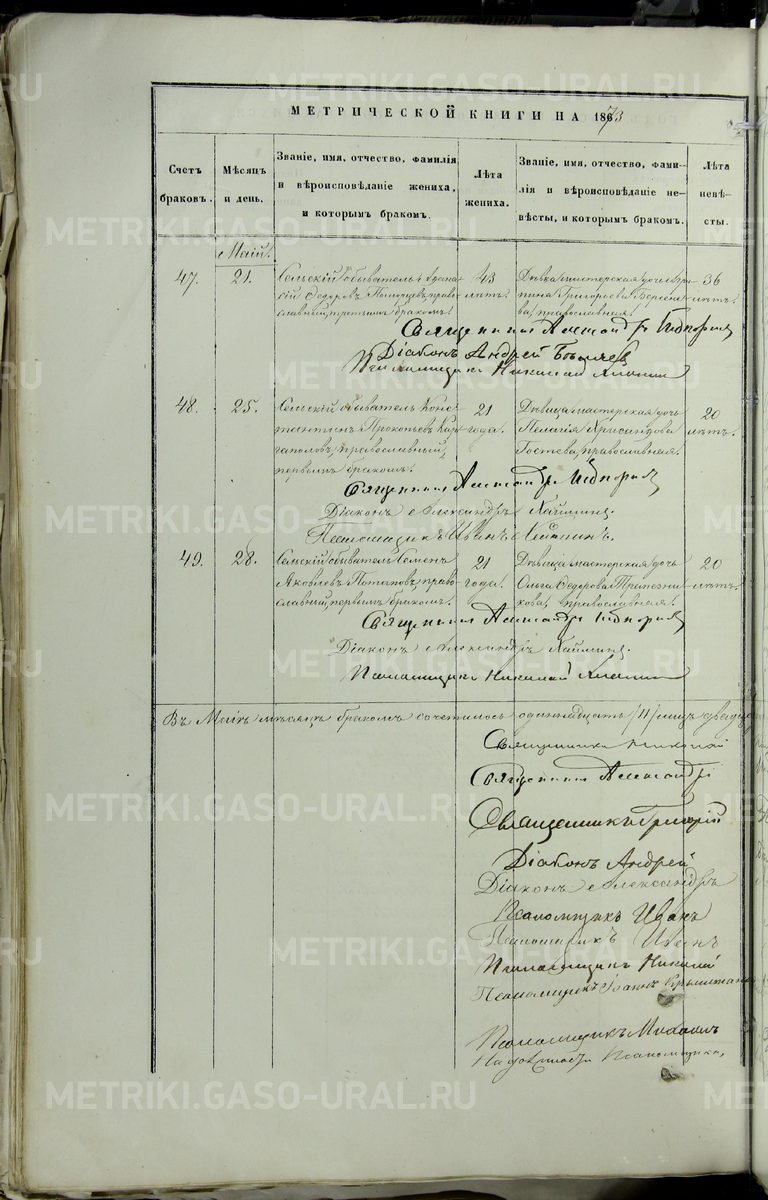 МЕТРИЧЕСКОЙ КНИГИ НА 1873
Счетъ
браковъ.
Мѣсяцъ
и день.
Званіе, имя, отчество, фамилія
и вѣроисповѣданіе жениха,
и которымъ бракомъ.
Лѣта
жениха.
Званіе, имя, отчество, фами-
лія и вѣроисповѣданіе не-
вѣсты, и которымъ бракомъ.
Лѣта
невѣ-
сты.
Маій.
47.
21.
Сельскій обыватель
Ѳедоровъ право-
славный, третьимъ бракомъ.
43
лѣтъ.
Дѣвка мастерская дочь
Григорьева
ва, православная.
36
лѣтъ.
Священникъ Александръ
Діаконъ Андрей
Псаломщикъ Николай
48.
25.
Сельскій обыватель Конс-
тантинъ Прокопьевъ Кар-
гаполовъ, православный,
первымъ бракомъ.
21
года.
Дѣвица мастерская дочь
Пелагія Хрисанфова
Гостева, православная.
20
лѣтъ.
Священникъ Александръ
Діаконъ Александръ
Псаломщикъ Иванъ
49.
28.
Сельскій обыватель Семенъ
Яковлевъ Потаповъ, право-
славный, первымъ бракомъ.
21
года.
Дѣвица мастерская дочь
Ольга Ѳедорова Трапезни-
кова, православная.
20
лѣтъ.
Священникъ Александръ
Діаконъ Александръ
Псаломщикъ Николай
Въ Маіѣ мѣсяцѣ бракомъ сочеталось одиннадцать /11/ лицъ двадц
Священникъ Николай
Священникъ Александръ
Священникъ Григорій
Діаконъ Андрей
Діаконъ Александръ
Псаломщикъ Иванъ
Псаломщикъ Иванъ
Псаломщикъ Николай
Псаломщикъ Іоаннъ
Псаломщикъ Михаилъ
Псаломщика,
METRIKI.GASO-URAL.RU